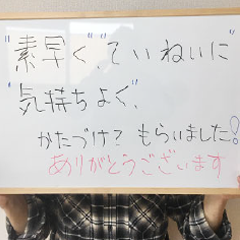 "素早く" "ていねいに"
"気持ちよく"、
かたづけ？もらいました！
ありがとうございます